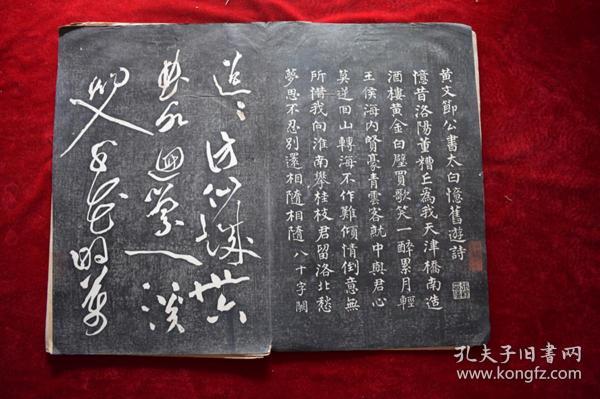 黃文節公書太白憶舊遊詩
憶昔洛陽董糟丘為我天津橋南造
酒樓黃金白璧買歌笑一醉累月輕
王侯海內賢豪青雲客就中與君心
莫逆回山轉海不作難傾情倒意無
所惜我向淮南攀桂枝君留洛北愁
夢思不忍別還相隨相隨 八十字闕
迢〻訪仙城卅六
曲水迴縈一溪
初入千花明萬
孔夫子旧书网
www.kongfz.com